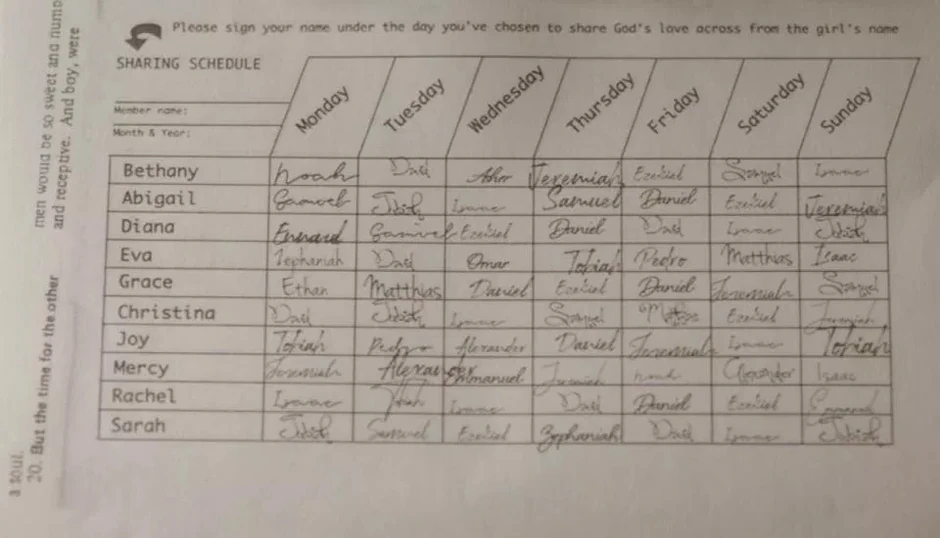 men would be so sweet and
and receptive. And boy, were
20. But the time for the other
a soul.
Please sign your name under the day you've chosen to share God's love across from the girl's name
SHARING SCHEDULE
Member name:
Month & Year:
Monday Tuesday Wednesday Thursday Friday Saturday Sunday
Bethany Noah David Asher Jeremiah Ezekiel Samuel Isaac
Abigail Samuel Isaac Samuel Daniel Ezekiel Jeremiah
Diana Ezekiel Daniel David Isaac
Eva Zephaniah David Omar Tobiah Pedro Matthias Isaac
Grace Ethan Matthias Daniel Ezekiel Daniel Jeremiah Samuel
Christina David Isaac Samuel Ezekiel Jeremiah
Joy Tobiah Pedro Alexander Daniel Jeremiah Isaac Tobiah
Mercy Jeremiah Alexander Emmanuel Jeremiah Noah Alexander Isaac
Rachel Isaac Isaac David Daniel Ezekiel Emmanuel
Sarah Samuel Ezekiel Zephaniah David Isaac